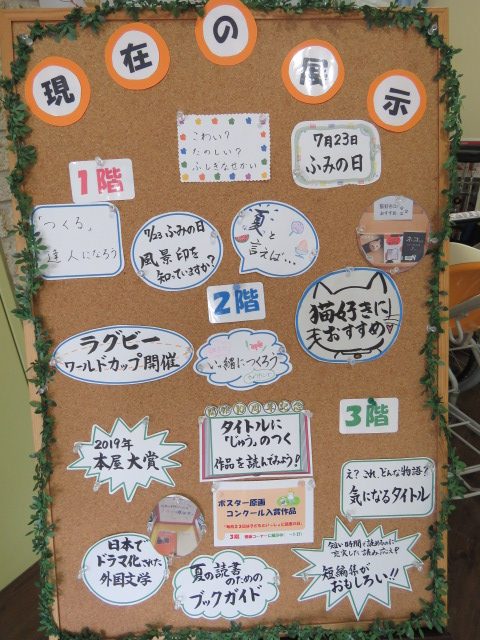 現在の展示
こわい？
たのしい？
ふしぎなせかい
7月23日
ふみの日
1階
「つくる」
達人になろう
7/23 ふみの日
風景印を
知っていますか？
夏と
言えば…
2階
猫好きに
おすすめ
ラグビー
ワールドカップ開催
いっ緒につくろう
3階
2019年
本屋大賞
タイトルに
「じゅう」のつく
作品を読んでみよう!
え？これ、どんな物語？
気になるタイトル
ポスター原画
コンクール入賞作品
日本で
ドラマ化された
外国文学
夏の読書
のための
ブックガイド
短い時間で読めるのに
充実した読みごたえ?
短編集が
おもしろい!!